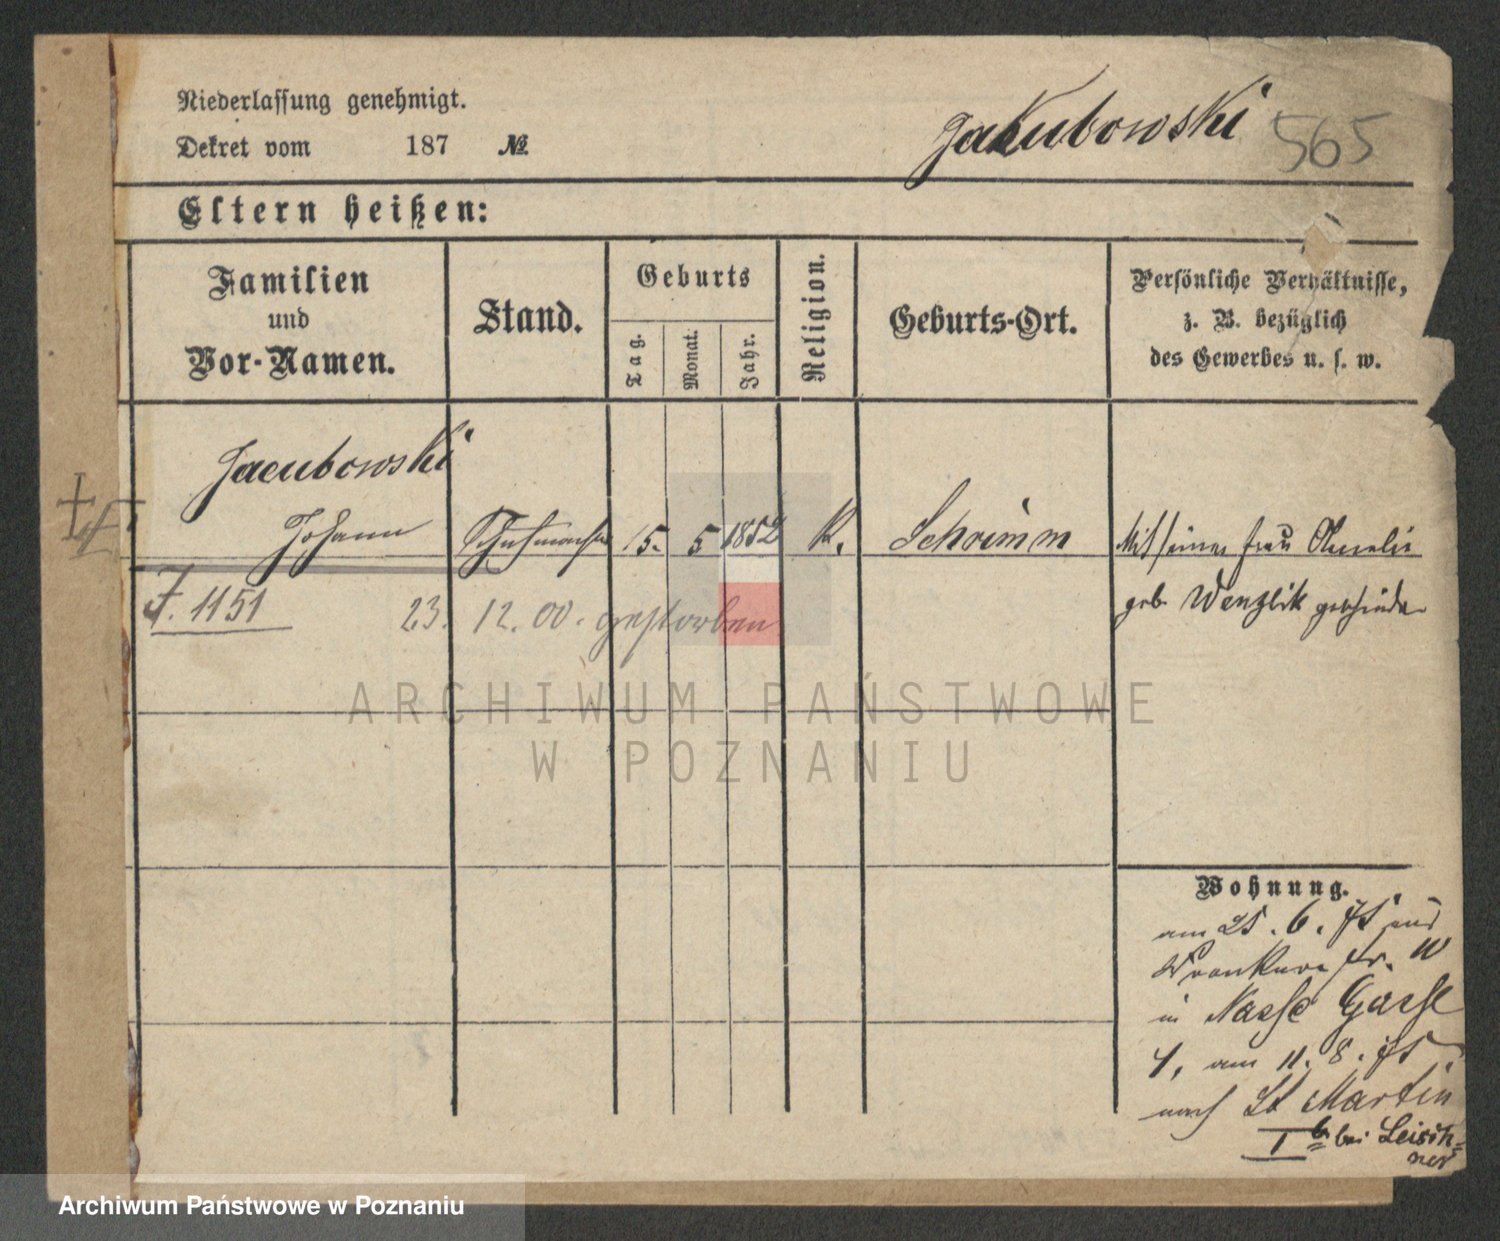 Niederlassung genehmigt.
Jakubowski 565
Dekret vom 187 №
Eltern heißen:
Familien
und
Vor-Namen.
Stand.
Geburts
Tag.
Monat.
Jahr.
Religion.
Geburts-Ort.
Persönliche Verhältnisse,
z. B. bezüglich
des Gewerbes u. s. w.
Jacubowski
Johann Schuhmacher 15. 5 1852 K. Schrimm Mit seiner Frau
geb. Wenzlik geschieden
J. 1151 23. 12. 00. gestorben
ARCHIWUM PAŃSTWOWE
W POZNANIU
Wohnung.
am 25. 6. 75 aus
in Nasse Gasse
4, am 11. 8. 75
nach St Martin
bei Leisch=
ner
Archiwum Państwowe w Poznaniu